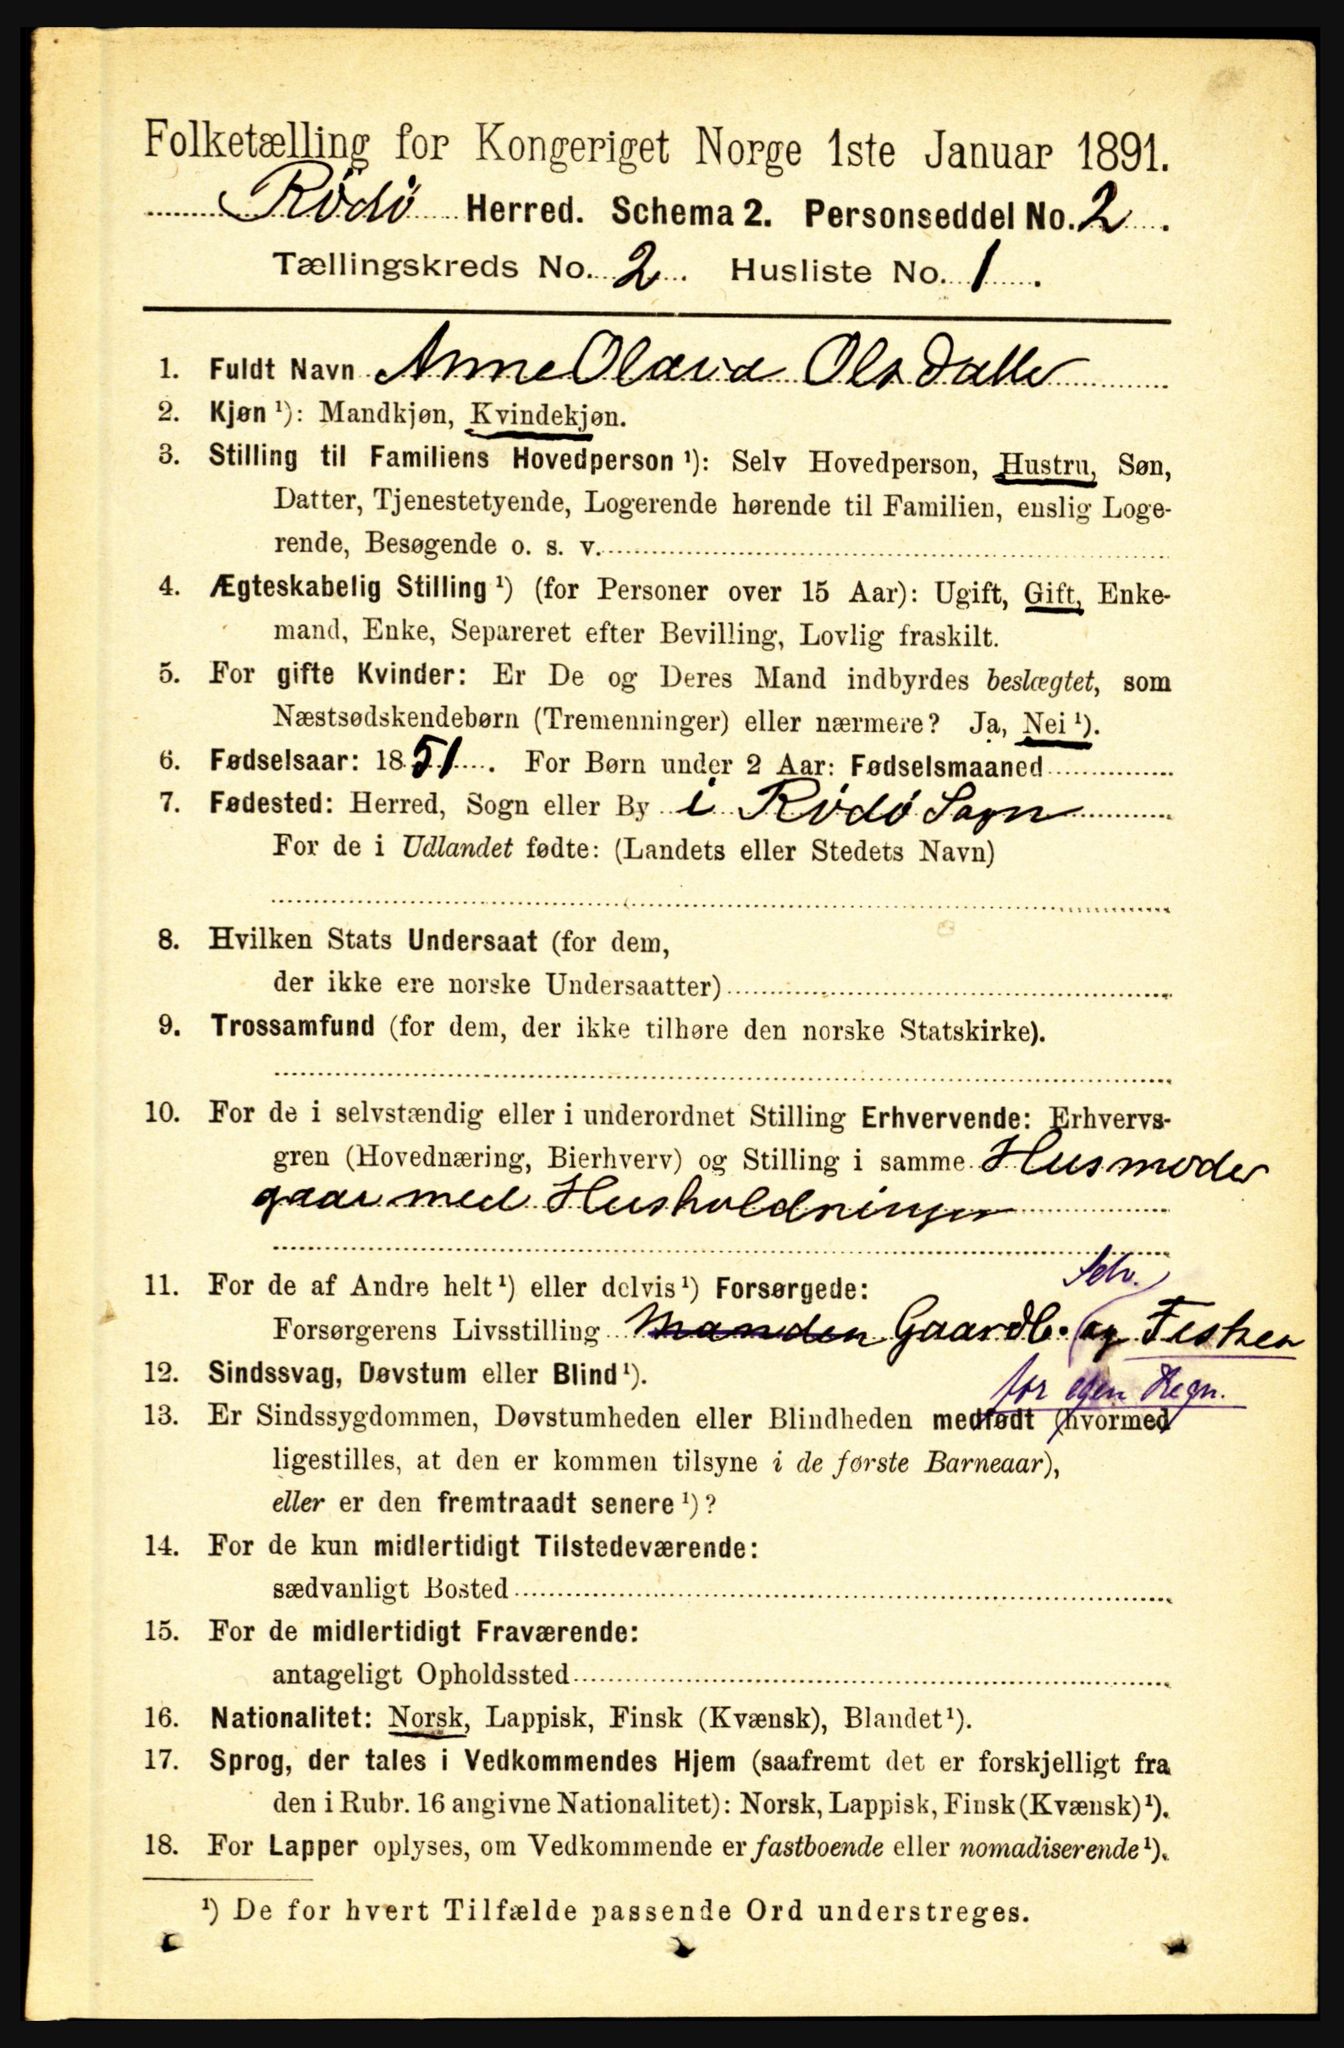 Folketælling for Kongeriget Norge 1ste Januar 1891.
Rödö Herred. Schema 2. Personseddel No. 2.
Tællingskreds No. 2. Husliste No. 1.
1. Fuldt Navn Anne Olava Olsdatter
2. Kjøn ¹): Mandkjøn, Kvindekjøn.
3. Stilling til Familiens Hovedperson ¹): Selv Hovedperson, Hustru, Søn,
Datter, Tjenestetyende, Logerende hørende til Familien, enslig Loge-
rende, Besøgende o. s. v.
4. Ægteskabelig Stilling ¹) (for Personer over 15 Aar): Ugift, Gift, Enke-
mand, Enke, Separeret efter Bevilling, Lovlig fraskilt.
5. For gifte Kvinder: Er De og Deres Mand indbyrdes beslægtet, som
Næstsødskendebørn (Tremenninger) eller nærmere? Ja, Nei ¹).
6. Fødselsaar: 1851. For Børn under 2 Aar: Fødselsmaaned
7. Fødested: Herred, Sogn eller By i Rödö Sogn
For de i Udlandet fødte: (Landets eller Stedets Navn)
8. Hvilken Stats Undersaat (for dem,
der ikke ere norske Undersaatter)
9. Trossamfund (for dem, der ikke tilhøre den norske Statskirke).
10. For de i selvstændig eller i underordnet Stilling Erhvervende: Erhvervs-
gren (Hovednæring, Bierhverv) og Stilling i samme Husmoder
gaar med Husholdningen
11. For de af Andre helt ¹) eller delvis ¹) Forsørgede: Selv.
Forsørgerens Livsstilling Manden Gaardb. og Fisker
for egen Regn.
12. Sindssvag, Døvstum eller Blind ¹).
13. Er Sindssygdommen, Døvstumheden eller Blindheden medfødt (hvormed
ligestilles, at den er kommen tilsyne i de første Barneaar),
eller er den fremtraadt senere ¹)?
14. For de kun midlertidigt Tilstedeværende:
sædvanligt Bosted
15. For de midlertidigt Fraværende:
antageligt Opholdssted
16. Nationalitet: Norsk, Lappisk, Finsk (Kvænsk), Blandet ¹).
17. Sprog, der tales i Vedkommendes Hjem (saafremt det er forskjelligt fra
den i Rubr. 16 angivne Nationalitet): Norsk, Lappisk, Finsk (Kvænsk) ¹).
18. For Lapper oplyses, om Vedkommende er fastboende eller nomadiserende ¹).
¹) De for hvert Tilfælde passende Ord understreges.